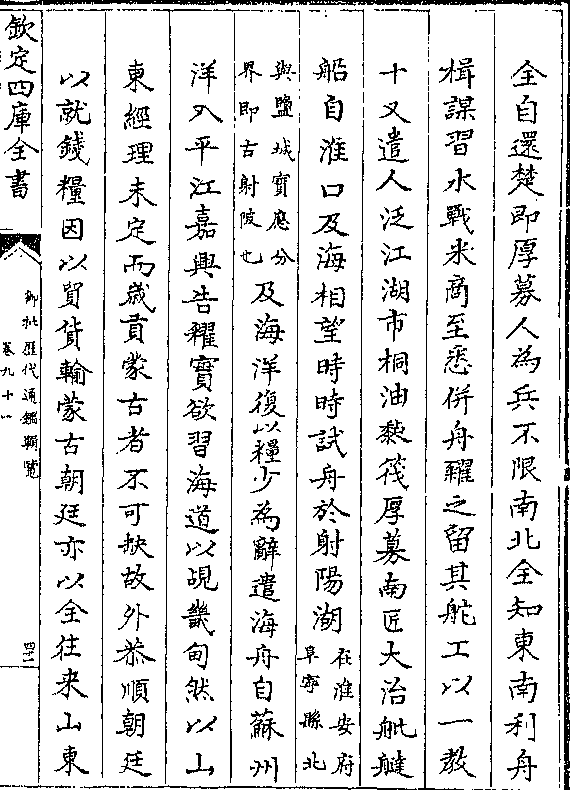 全自還楚即厚募人為兵不限南北全知東南利舟
楫謀習水戰米商至悉併舟糴之留其舵工以一教
十又遣人泛江湖市桐油𥻦筏厚募南匠大治舭𦪭
船自淮口及海相望時時試舟於射陽湖在淮安府阜寧縣北
與鹽城寶應分界即古射陂也及海洋復以糧少為辭遣海舟自蘇州
洋入平江嘉興告糴實欲習海道以覘畿甸然以山
東經理未定而歲貢蒙古者不可缺故外恭順朝廷
以就錢糧因以貿貨輸蒙古朝廷亦以全往来山東
欽定四庫全書
御批歷代通鑑輯覽
卷九十一